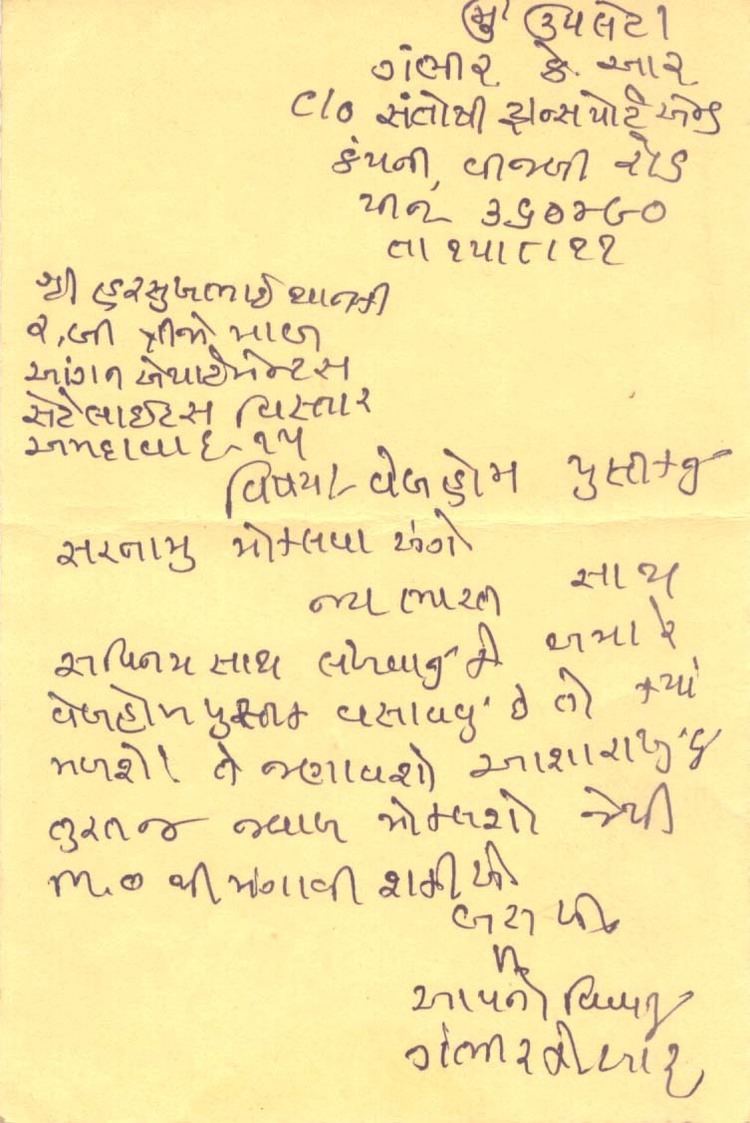 મુ ઉપલેટા
ગંભીર કે. આર
C/o સંતોષી ટ્રાન્સપોર્ટ એન્ડ
કંપની, વીજળી રોડ
પીન ૩૬૦૪૯૦
તા ૧૫/૮/૧૧
શ્રી હરસુખભાઈ થાનકી
ર,બી ત્રીજો માળ
આંગન એપાર્ટમેન્ટસ
સેટેલાઈટસ વિસ્તાર
અમદાવાદ-૧૫
વિષય:- વેબહોમ પુસ્તકનું
સરનામુ મોકલવા અંગે
જય ભારત સાથ
સવિનય સાથ લખવાનું કે અમારે
વેબહોમ પુસ્તક વસાવવું છે તો ક્યાં
મળશે! તે જણાવશો આશા રાખું છું
તુરત જ જવાબ મોકલશો જેથી
M.O થી મંગાવી શકીએ
એજ
આપનો
ગંભીર કે આર